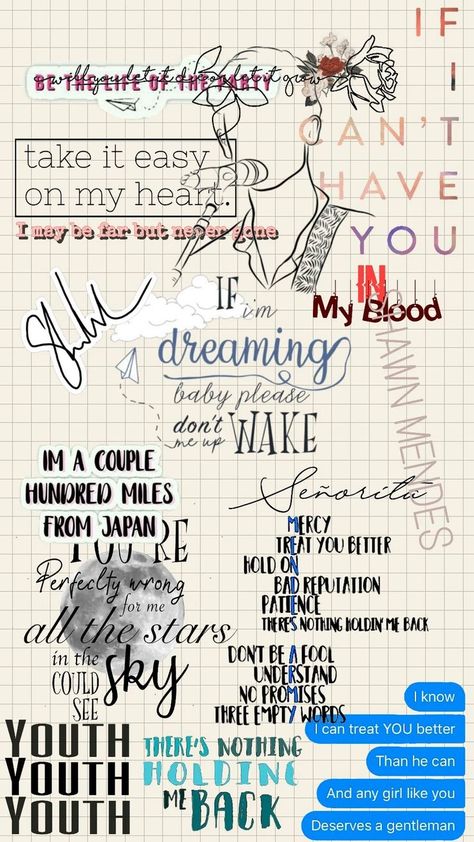 will you let it let it grow
BE THE LIFE OF THE PARTY
IF
I
CAN'T
HAVE
YOU
take it easy
on my heart.
I may be far but never gone
IN
My Blood
SHAWN MENDES
IF i'm
dreaming
baby please
don't
me up
WAKE
IM A COUPLE
HUNDRED MILES
FROM JAPAN
Señorita
YOU'RE
Perfeclty wrong
for me
all the stars
in the
COULD
SEE
sky
MERCY
TREAT YOU BETTER
HOLD ON
BAD REPUTATION
PATIENCE
THERE'S NOTHING HOLDIN' ME BACK
DON'T BE A FOOL
UNDERSTAND
NO PROMISES
THREE EMPTY WORDS
YOUTH
YOUTH
YOUTH
THERE'S NOTHING
HOLDING
ME BACK
I know
I can treat YOU better
Than he can
And any girl like you
Deserves a gentleman